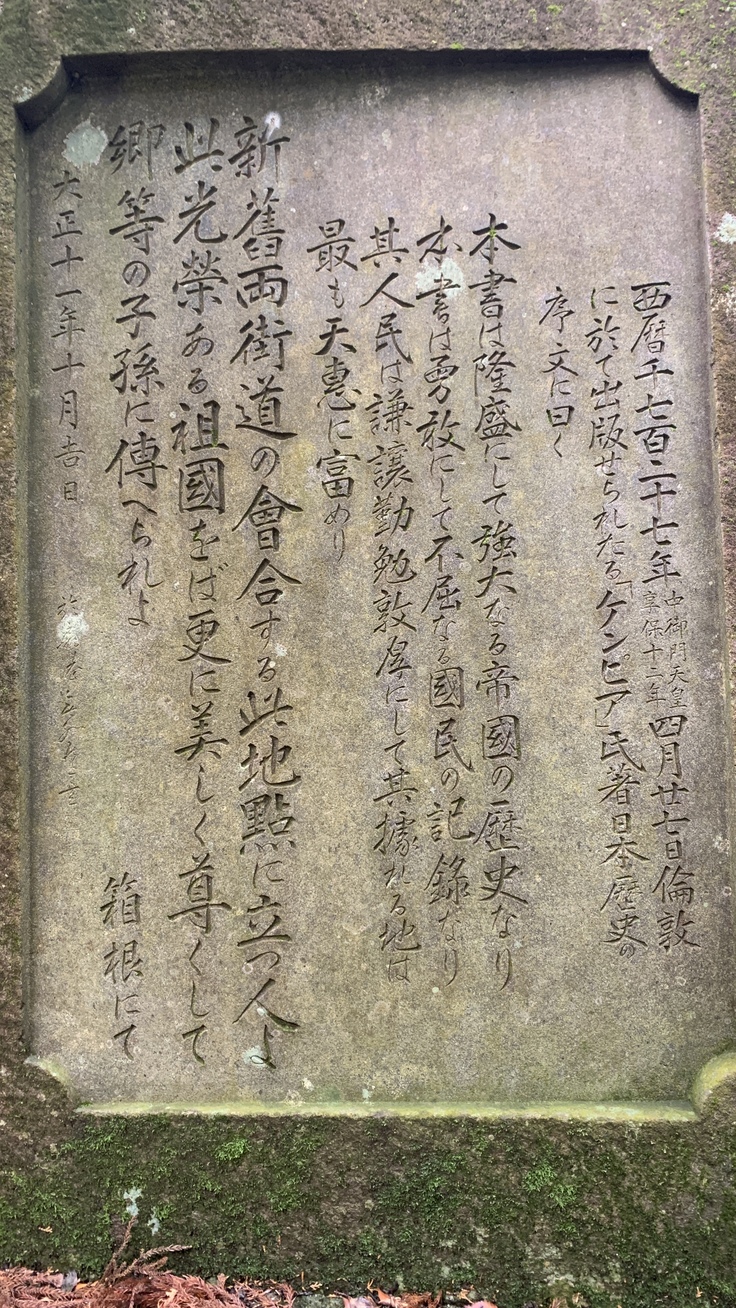 西暦千七百二十七年中御門天皇享保十二年四月廿七日倫敦
に於て出版せられたる「ケンピア」氏著日本歴史の
序文に曰く
本書は隆盛にして強大なる帝國の歴史なり
本書は勇敢にして不屈なる國民の記録なり
其人民は謙譲勤勉敦厚にして其據れる地は
最も天恵に富めり
新舊両街道の會合する此地點に立つ人よ
此光榮ある祖國をば更に美しく尊くして
郷等の子孫に傳へられよ 箱根にて
大正十一年十月吉日